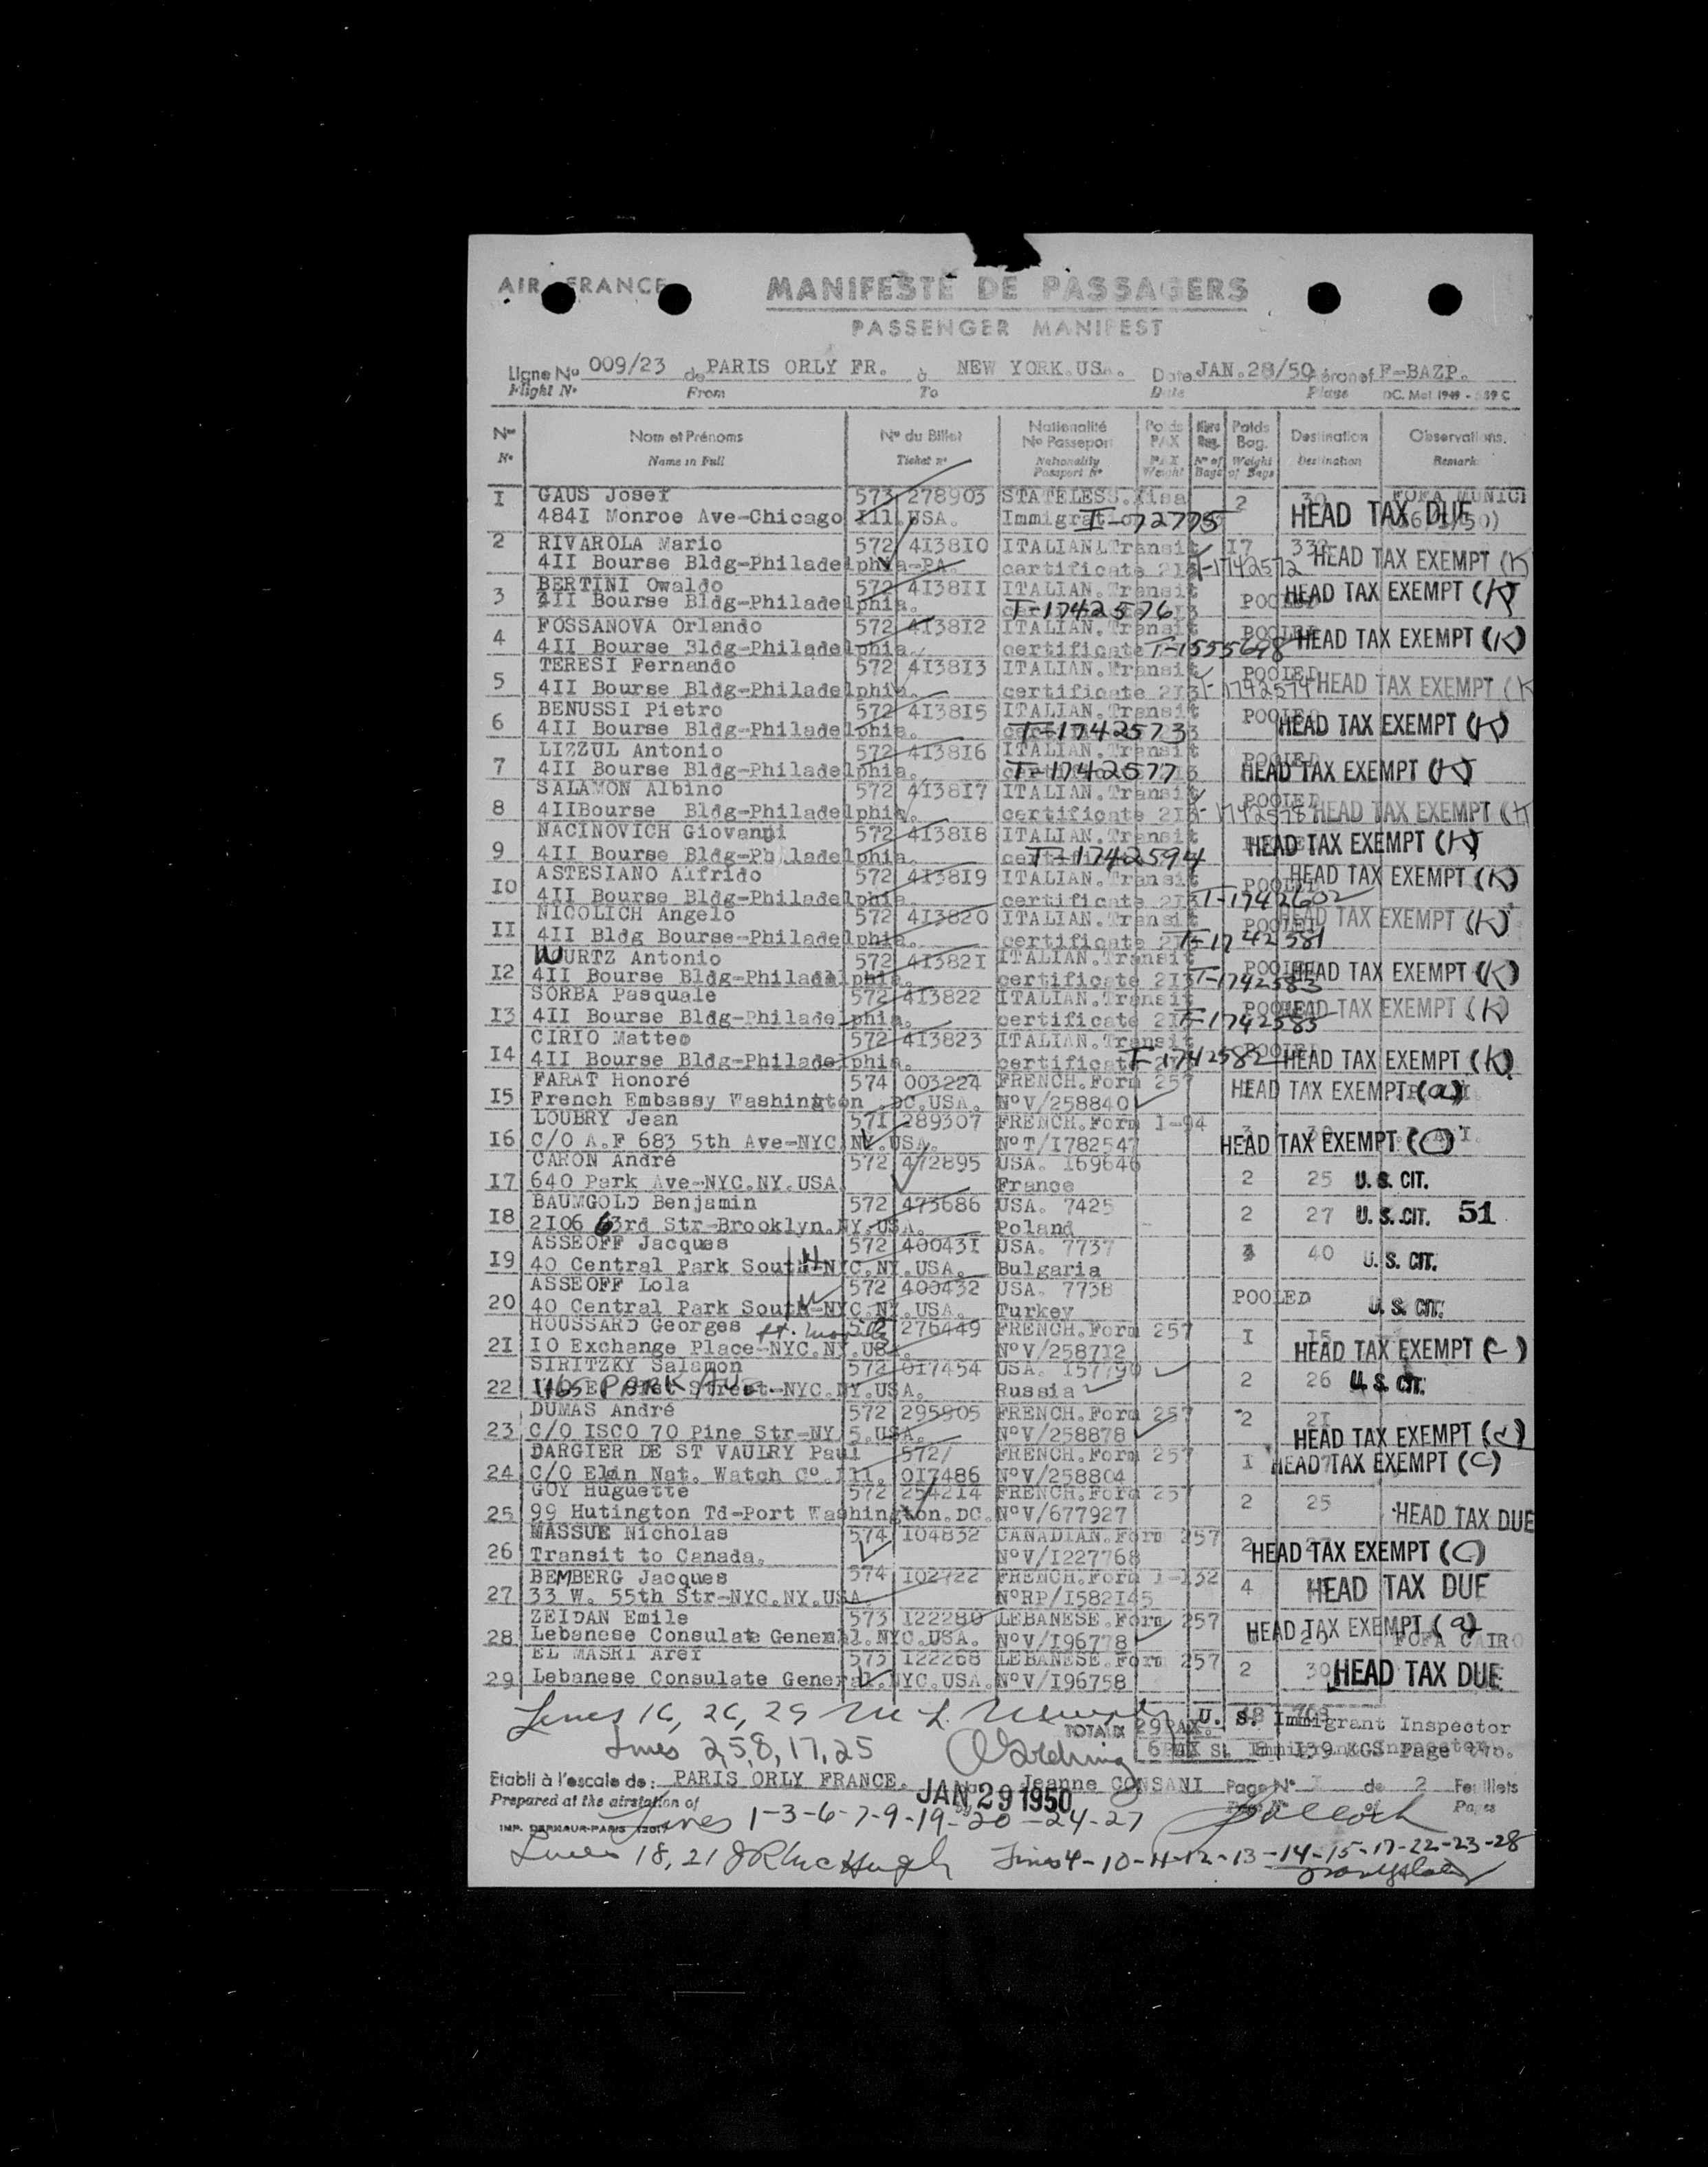 AIR FRANCE
MANIFESTE DE PASSAGERS
PASSENGER MANIFEST
Ligne No 009/23 de PARIS ORLY FR. à NEW YORK.USA. Date JAN.28/50 F-BAZP.
Flight No From To Date DC. Mol 1949
Nos Nom et Prénoms No du Billet Nationalité No Passeport Poids PAX Poids Bag. Destination Observations.
No Name in Full Ticket no Nationality Passport No PAX Weight No of Bags Weight of Bags Destination Remark
I GAUS Josef 573 278903 STATELESS. Visa 2 30
484I Monroe Ave-Chicago Ill.USA. Immigration I-72775 HEAD TAX DUE
2 RIVAROLA Mario 572 4I38I0 ITALIAN.Transit I7
4II Bourse Bldg-Philadelphia-PA. certificate 2I3 T-1742572 HEAD TAX EXEMPT (K)
3 BERTINI Owaldo 572 4I38II ITALIAN.Transit
4II Bourse Bldg-Philadelphia. T-1742576 POOLED HEAD TAX EXEMPT (K)
4 FOSSANOVA Orlando 572 4I38I2 ITALIAN.Transit POOLED
4II Bourse Bldg-Philadelphia. certificate T-1555698 HEAD TAX EXEMPT (K)
5 TERESI Fernando 572 4I38I3 ITALIAN.Transit POOLED
4II Bourse Bldg-Philadelphia. certificate 2I3 T-1742574 HEAD TAX EXEMPT (K
6 BENUSSI Pietro 572 4I38I5 ITALIAN.Transit POOLED
4II Bourse Bldg-Philadelphia. T-1742573 HEAD TAX EXEMPT (K)
7 LIZZUL Antonio 572 4I38I6 ITALIAN.Transit POOLED
4II Bourse Bldg-Philadelphia. T-1742577 HEAD TAX EXEMPT (K)
8 SALAMON Albino 572 4I38I7 ITALIAN.Transit POOLED
4IIBourse Bldg-Philadelphia. certificate 2I3 T-1742578 HEAD TAX EXEMPT (K
9 NACINOVICH Giovanni 572 4I38I8 ITALIAN.Transit
4II Bourse Bldg-Philadelphia. T-1742594 HEAD TAX EXEMPT (K)
I0 ASTESIANO Alfrido 572 4I38I9 ITALIAN.Transit POOLED HEAD TAX EXEMPT (K)
4II Bourse Bldg-Philadelphia. certificate 2I3 T-1742602
II NICOLICH Angelo 572 4I3820 ITALIAN.Transit POOLED HEAD TAX EXEMPT (K)
4II Bldg Bourse-Philadelphia. certificate T-1742581
I2 WURTZ Antonio 572 4I382I ITALIAN.Transit POOLED HEAD TAX EXEMPT (K)
4II Bourse Bldg-Philadelphia. certificate 2I3 T-1742583
I3 SORBA Pasquale 572 4I3822 ITALIAN.Transit POOLED HEAD TAX EXEMPT (K)
4II Bourse Bldg-Philadelphia. certificate T-1742585
I4 CIRIO Matteo 572 4I3823 ITALIAN.Transit POOLED
4II Bourse Bldg-Philadelphia. certificate T-1742582 HEAD TAX EXEMPT (K)
I5 FARAT Honoré 574 003224 FRENCH.Form 257 HEAD TAX EXEMPT (a)
French Embassy Washington .DC.USA. N°V/258840
I6 LOUBRY Jean 57I 289307 FRENCH.Form I-94
C/O A.F 683 5th Ave-NYC.NY.USA. N°T/I782547 HEAD TAX EXEMPT (C)
I7 CARON André 572 472895 USA. I69646
640 Park Ave-NYC.NY.USA France 2 25 U.S. CIT.
I8 BAUMGOLD Benjamin 572 473686 USA. 7425
2I06 63rd Str-Brooklyn.NY.USA. Poland 2 27 U.S. CIT. 51
I9 ASSEOFF Jacques 572 40043I USA. 7737 40
40 Central Park South-NYC.NY.USA. Bulgaria U.S. CIT.
20 ASSEOFF Lola 572 400432 USA. 7738 POOLED
40 Central Park South-NYC.NY.USA. Turkey U.S. CIT.
2I HOUSSARD Georges 276449 FRENCH.Form 257 I I5
I0 Exchange Place-NYC.NY.USA. N°V/2587I2 HEAD TAX EXEMPT
22 SIRITZKY Salamon 572 0I7454 USA. I57790
1165 PARK AVE. Street-NYC.NY.USA. Russia 2 26 U.S. CIT.
23 DUMAS André 572 295905 FRENCH.Form 257 2 2I
C/O ISCO 70 Pine Str-NY 5.USA. N°V/258878 HEAD TAX EXEMPT
24 DARGIER DE ST VAULRY Paul 572/ FRENCH.Form 257 I
C/O Elgin Nat. Watch C° Ill. 0I7486 N°V/258804 HEAD TAX EXEMPT (C)
25 GOY Huguette 572 254214 FRENCH.Form 257 2 25
99 Hutington Td-Port Washington.DC. N°V/677927 HEAD TAX DUE
26 MASSUE Nicholas 574 I04832 CANADIAN.Form 257 2
Transit to Canada. N°V/I227768 HEAD TAX EXEMPT (C)
27 BEMBERG Jacques 574 I02722 FRENCH.Form I-I32 4 HEAD TAX DUE
33 W. 55th Str-NYC.NY.USA. N°RP/I582I45
28 ZEIDAN Emile 573 I22280 LEBANESE.Form 257 HEAD TAX EXEMPT (a)
Lebanese Consulate General.NYC.USA. N°V/I96778 FOFA CAIRO
29 EL MASRI Aref 573 I22268 LEBANESE.Form 257 2 30 HEAD TAX DUE
Lebanese Consulate General.NYC.USA. N°V/I96758
Lines 16, 26, 29
TOTAUX 29PAX. U. S. Immigrant Inspector
Lines 2,5,8,17,25 I39 KGS Page
Etabli à l'escale de: PARIS ORLY FRANCE. JAN 29 1950 Jeanne CONSANI Page No I de 2 Feuillets
Prepared at the airstation of Pages
Lines 1-3-6-7-9-19-20-24-27
Lines 18, 21 Lines 4-10-11-12-13-14-15-17-22-23-28